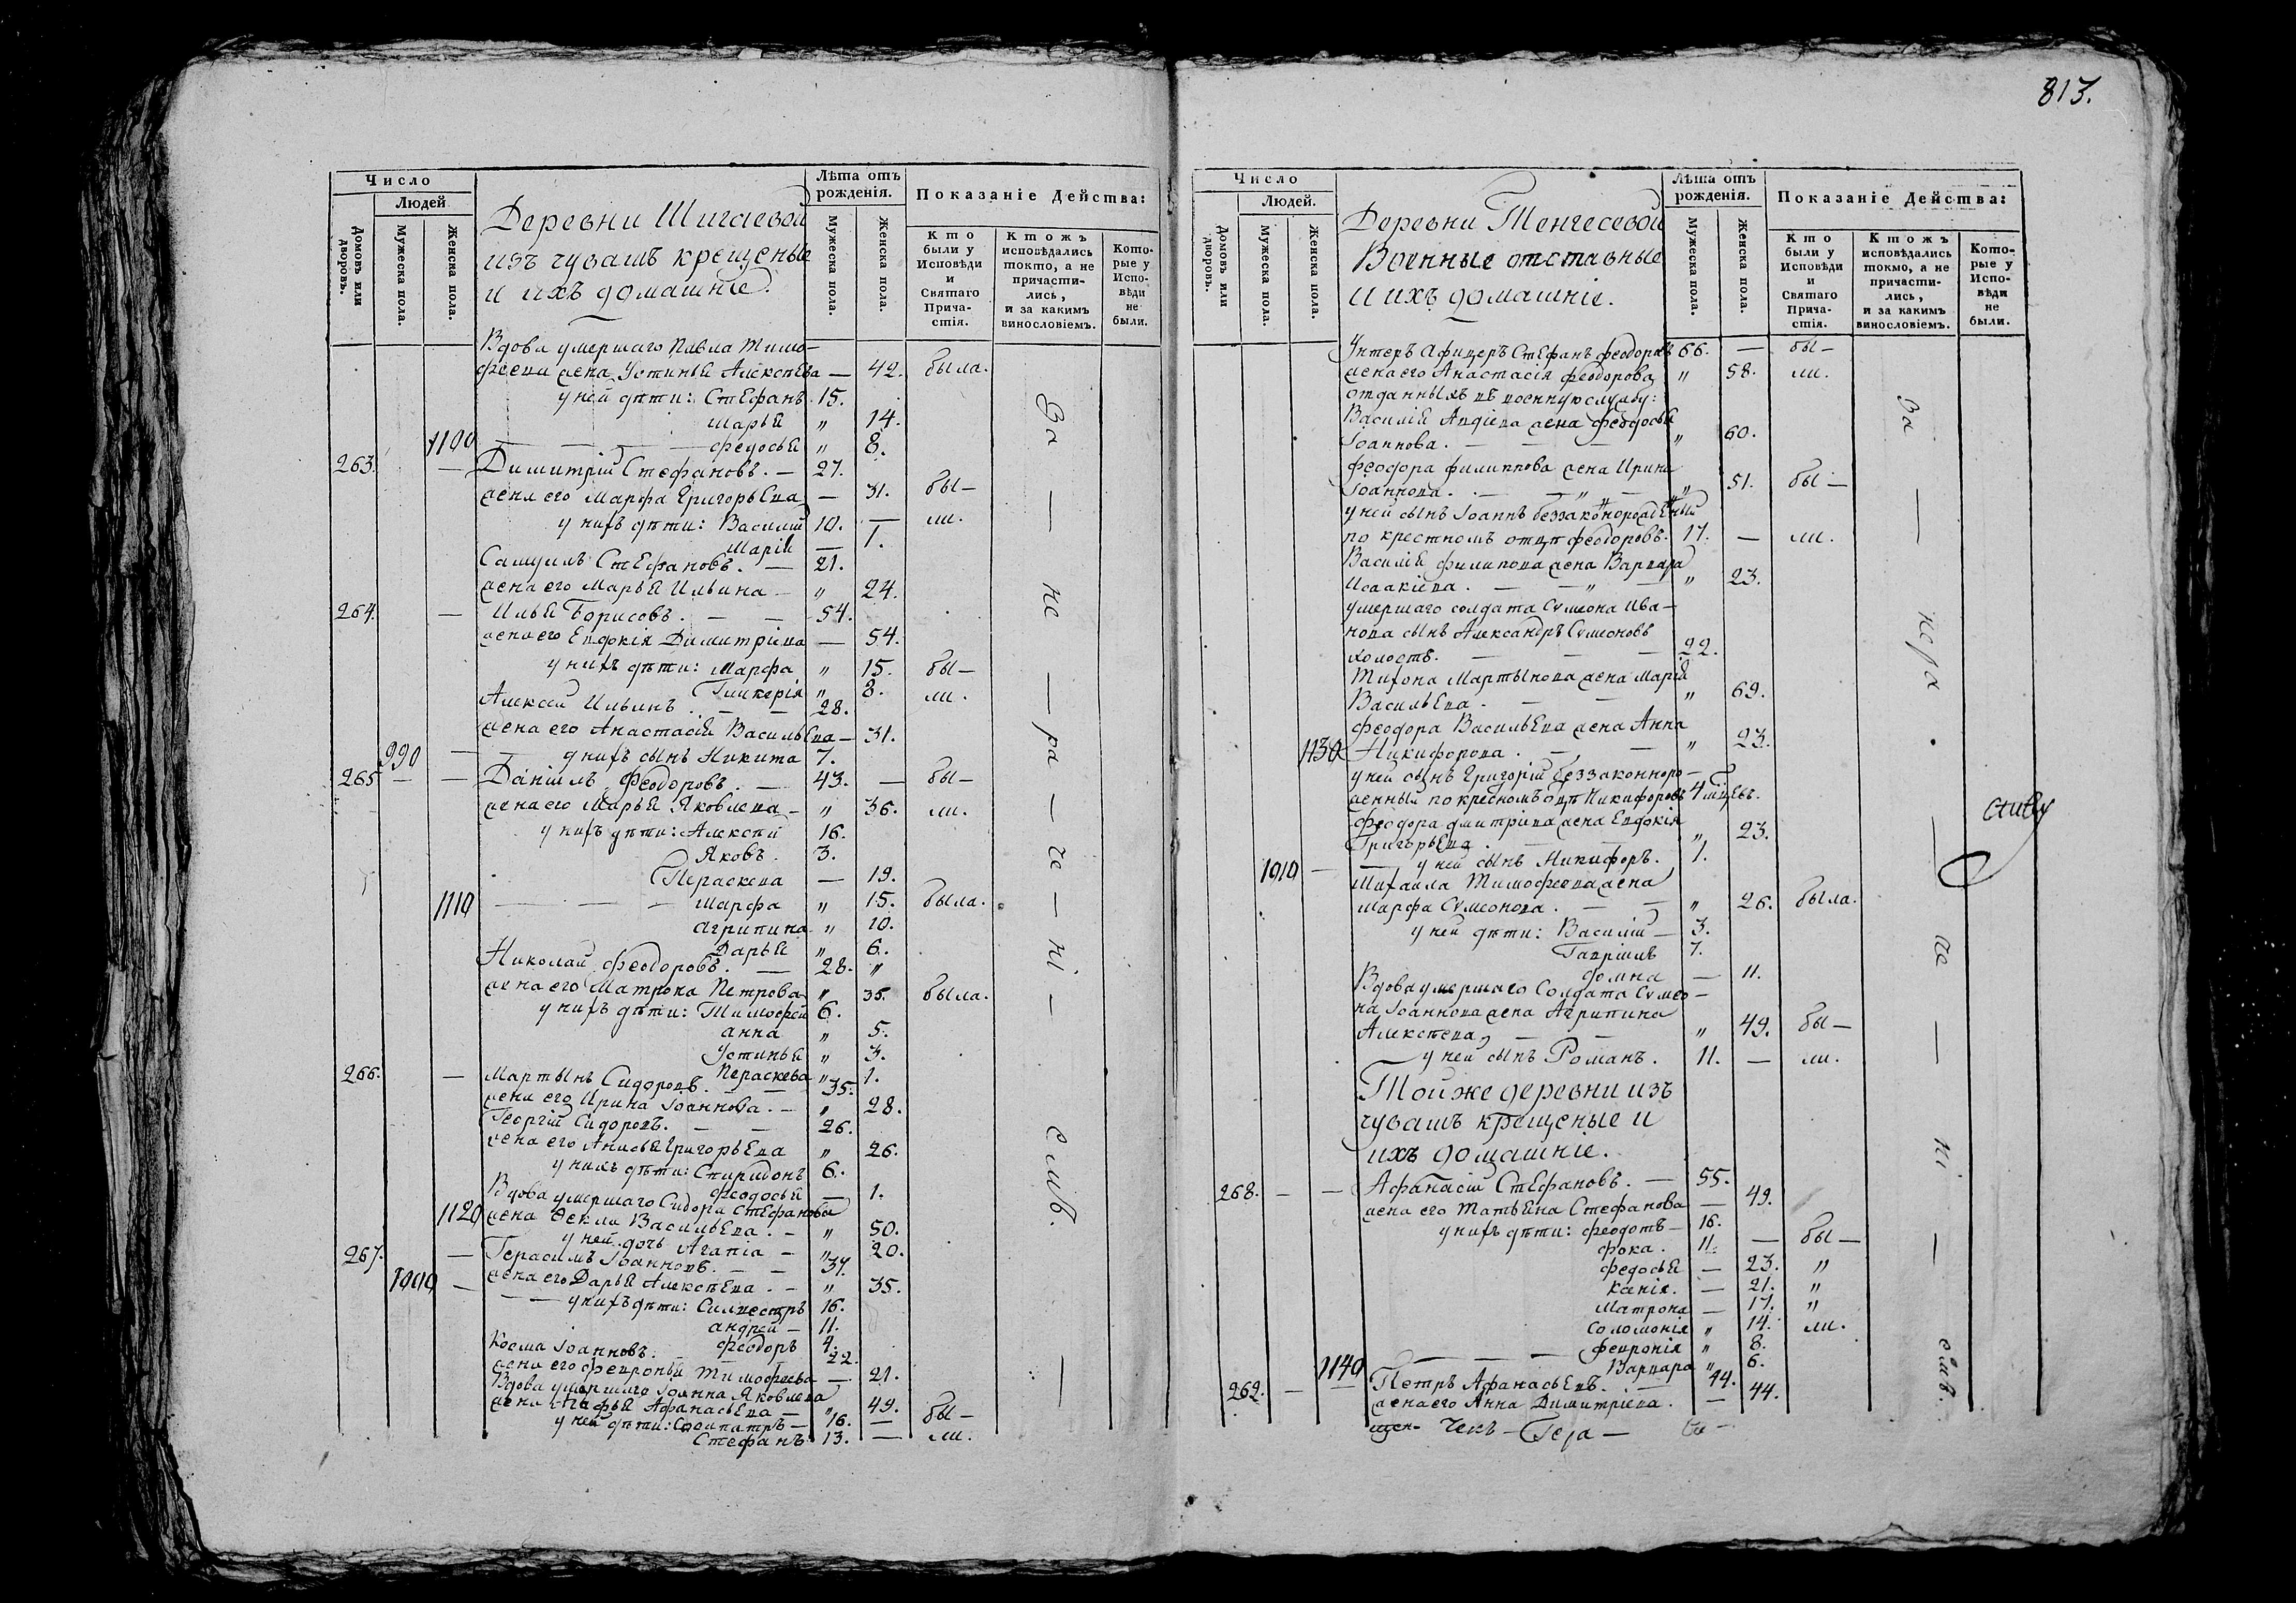 813.
Число
Людей
Домовъ или дворовъ.
Мужеска пола.
Женска пола.
Деревни Шигаевой
изъ чувашъ крещеные
и ихъ домашніе.
Лѣта отъ рожденія.
Мужеска пола.
Женска пола.
Показаніе Действа:
Кто были у Исповѣди и Святаго Причастія.
Ктожъ исповѣдались токмо, а не причастились, и за какимъ винословіемъ.
Которые у Исповѣди не были.
Вдова умершаго Павла Тимо-
феева жена Устинья Алексѣева — 42. была.
у ней дѣти: Стефанъ 15.
Марья „ 14.
1100 Федосья „ 8.
263. — Димитрій Стефановъ. — 27.
жена его Марфа Григорьева — 31. бы—
у нихъ дѣти: Василій 10. — ли.
Марія — 1.
Самуилъ Стефановъ. — 21.
жена его Марья Ильина — „ 24.
264. — Илья Борисовъ. — — 54.
жена его Евдокія Димитріева — 54.
у нихъ дѣти: Марфа „ 15. бы—
Гликерія „ 8. ли.
Алексѣй Ильинъ. — — 28.
жена его Анастасія Васильева — 31.
990 — у нихъ сынъ Никита 7.
265 — — Даніилъ Феодоровъ. — 43. — бы—
жена его Марья Яковлева — „ 36. ли.
у нихъ дѣти: Алексѣй 16.
Яковъ. 3.
Пераскева — 19.
1110 — — — Марфа „ 15. была.
Агрипина „ 10.
Дарья „ 6.
Николай Феодоровъ. — 28. „
жена его Матрона Петрова „ 35. была.
у нихъ дѣти: Тимофей 6.
Анна „ 5.
Устинья „ 3.
Пераскева „ 1.
266. — Мартынъ Сидоровъ. — — 35.
жена его Ирина Іоаннова. — „ 28.
Георгій Сидоровъ. — — 26.
жена его Анисья Григорьева „ 26.
у нихъ дѣти: Спиридонъ 6.
Феодосья — 1.
Вдова умершаго Сидора Стефанова
1120 жена Фекла Васильева. — „ 50.
у ней дочь Агапіа — „ 20.
267. — Герасимъ Іоанновъ. — — 37.
1000 — жена его Дарья Алексѣева. — „ 35.
— — у нихъ дѣти: Силвестръ 16.
Андрей — 11.
Феодоръ 4.
Косма Іоанновъ. — 22.
жена его Февронья Тимофеева — 21.
Вдова умершаго Іоанна Яковлева
жена Агафья Афанасьева — „ 49.
у ней дѣти: Сосипатръ — 16. — бы—
Стефанъ 13. — ли.
За — не — ра — че — ні — емъ.
Число
Людей.
Домовъ или дворовъ.
Мужеска пола.
Женска пола.
Деревни Тенгесевой
Военные отставные
и ихъ домашніе.
Лѣта отъ рожденія.
Мужеска пола.
Женска пола.
Показаніе Действа:
Кто были у Исповѣди и Святаго Причастія.
Ктожъ исповѣдались токмо, а не причастились, и за какимъ винословіемъ.
Которые у Исповѣди не были.
Унтеръ Афицеръ Стефанъ Феодоровъ 66. — бы—
жена его Анастасія Феодорова „ 58. ли.
отданныхъ въ военную службу:
Василія Авдіева жена Феодосья
Іоаннова. — „ 60.
Феодора Филиппова жена Ирина
Іоаннова. — „ 51. бы—
у ней сынъ Іоаннъ беззаконорожденый
по крестномъ отцѣ Феодоровъ. 17. — ли.
Василія Филипова жена Варвара
Исаакіева. — „ 23.
умершаго солдата Сумеона Ива-
нова сынъ Александръ Сумеоновъ
холостъ. — — — 22.
Тихона Мартынова жена Марія
Васильева. — „ 69.
Феодора Васильева жена Анна
1130 Никифорова. — — „ 23.
у ней сынъ Григорій беззаконноро-
жденный по кресномъ отцѣ Никифоровъ 4 мѣцевъ.
Феодора Дмитріева жена Евдокія
Григорьева. „ 23.
1010 — — у ней сынъ Никифоръ. 1.
Михаила Тимофеева жена
Марфа Сумеонова. — — „ 26. была.
у ней дѣти: Василій — 3.
Гавріилъ 7.
Домна — 11.
Вдова умершаго Солдата Сумео-
на Іоаннова жена Агрипина
Алексѣева, — — „ 49. бы—
у ней сынъ Романъ. 11. — ли.
Той же деревни изъ
чувашъ крещеные и
ихъ домашніе.
268. — — Афанасій Стефановъ. — 55.
жена его Татьяна Стефанова — 49.
у нихъ дѣти: Феодотъ — 16.
Фока. 11. — бы—
Федосья — 23. „
Ксенія. — 21. „
Матрона — 17. „
Соломонія „ 14. ли.
Февронія „ 8.
1140 Варвара „ 6.
269. — — Петръ Афанасьевъ. — 44.
жена его Анна Димитріева. — 44.
За — нера — че — ні — емъ.